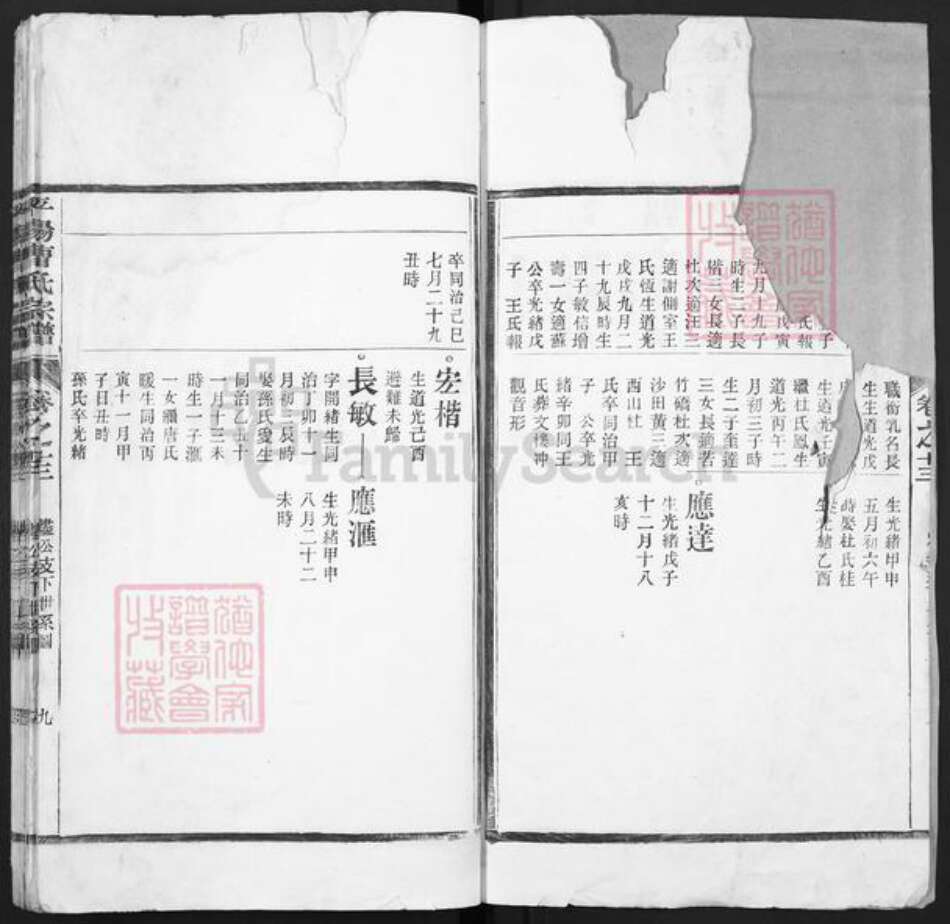 卷之十三
子
氏報
戊寅
九月十九子
時生二子長
楷三女長適
杜次適汪三
適謝側室王
氏恆生道光
戊戌九月二
十九辰時生
四子敏信增
壽一女適蘇
公卒光緒戊
子 王氏報
職銜乳名長
生生道光戊
生道光壬寅
繼杜氏鳳生
道光丙午二
月初三子時
生二子奎達
三女長適苦
竹礄杜次適
沙田黃三適
西山杜 王
氏卒同治甲
子 公卒光
緒辛卯同王
氏葬文樓冲
觀音形
生光緒甲申
五月初六午
時娶杜氏桂
生光緒乙酉
應達
生光緒戊子
十二月十八
亥時
卒同治己巳
七月二十九
丑時
宏楷
生道光己酉
避難未歸
長敏 應滙
字開緒生同
治丁卯一
月初三辰時
娶孫氏愛生
同治乙丑十
一月十三未
時生一子滙
一女繼唐氏
暖生同治丙
寅十一月甲
子日丑時
孫氏卒光緒
生光緒甲申
八月二十二
未時
平陽曹氏宗譜
卷之十三
公支下世系圖
九
譜學會
家
收藏
FamilySearch